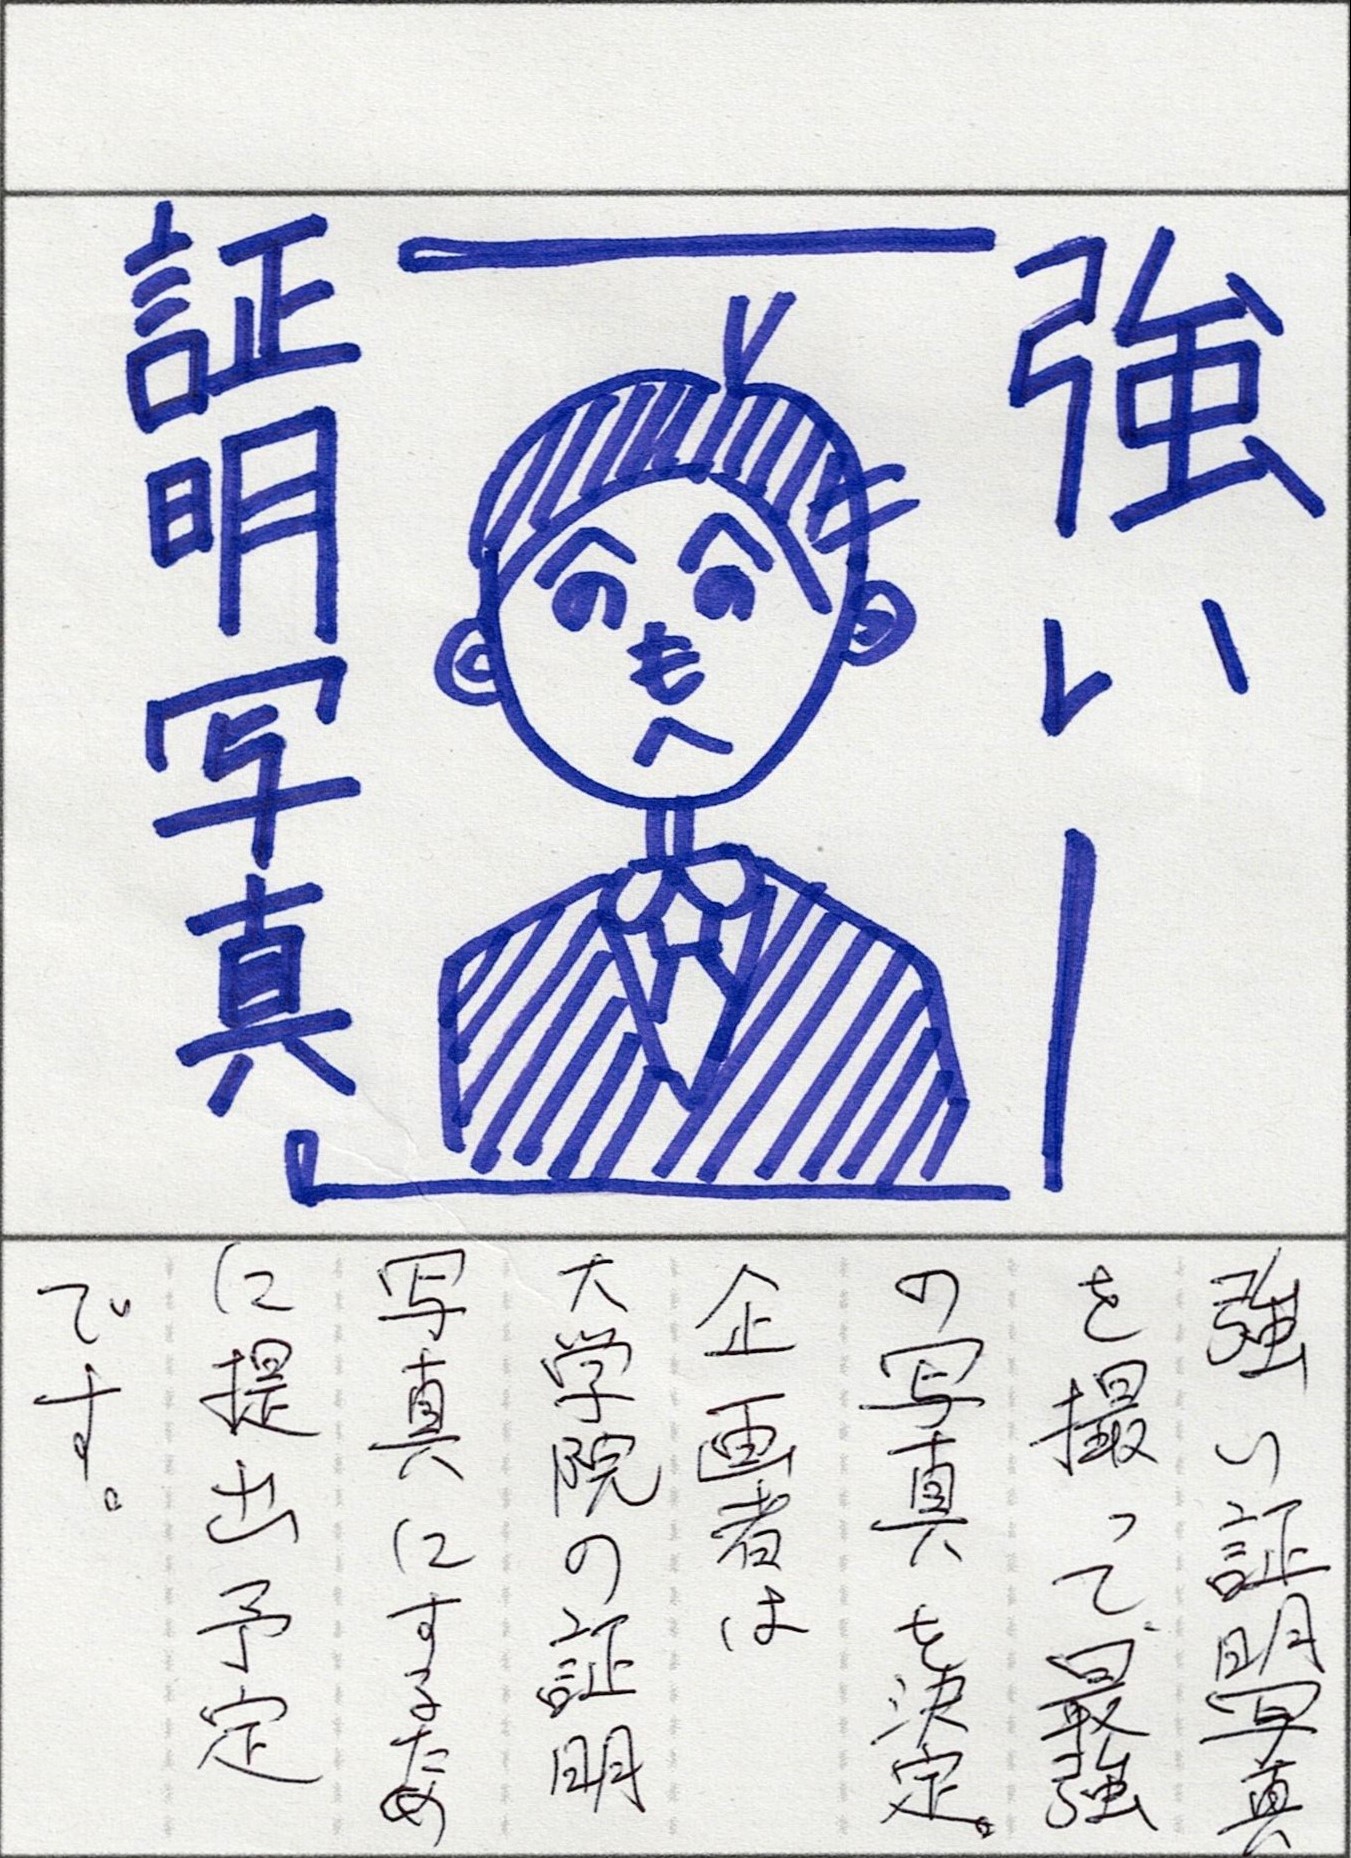 強い
証明写真
へへ
のの
も
へ
強い証明写真
を撮って、最強
の写真を決定。
企画者は
大学院の証明
写真にするため
に提出予定
です。